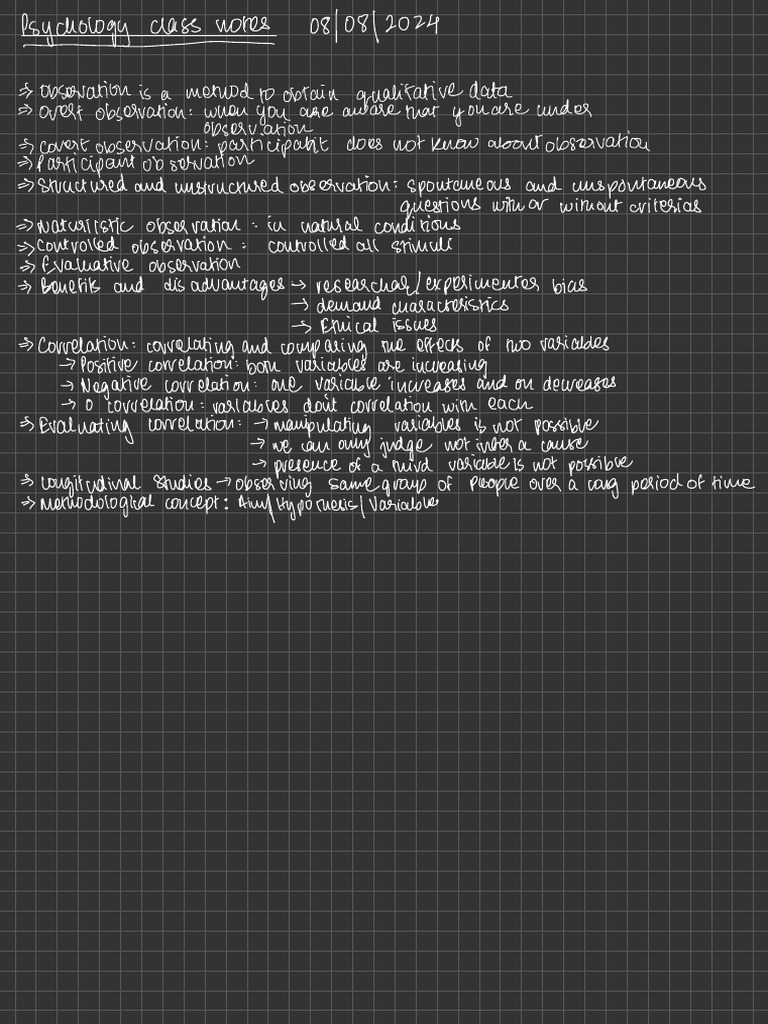 Psychology class notes 08/08/2024
⇒ Observation is a method to obtain qualitative data
⇒ Overt observation: when you are aware that you are under
observation
⇒ Covert observation: participant does not know about observation
⇒ Participant observation
⇒ Structured and unstructured observation: spontaneous and unspontaneous
questions with or without criterias
⇒ Naturistic observation: in natural conditions
⇒ Controlled observation: controlled all stimuli
⇒ Evaluative observation
⇒ Benefits and disadvantages → researcher/experimenter bias
→ demand characteristics
→ Ethical issues
⇒ Correlation: correlating and comparing the effects of two variables
→ Positive correlation: both variables are increasing
→ Negative correlation: one variable increases and on decreases
→ 0 correlation: variables dont correlation with each
⇒ Evaluating correlation: → manipulating variables is not possible
→ we can only judge not infer a cause
→ presence of a third variable is not possible
⇒ Longitudinal Studies → observing same group of people over a long period of time
⇒ Methodological concept: Aim/Hypothesis/Variable